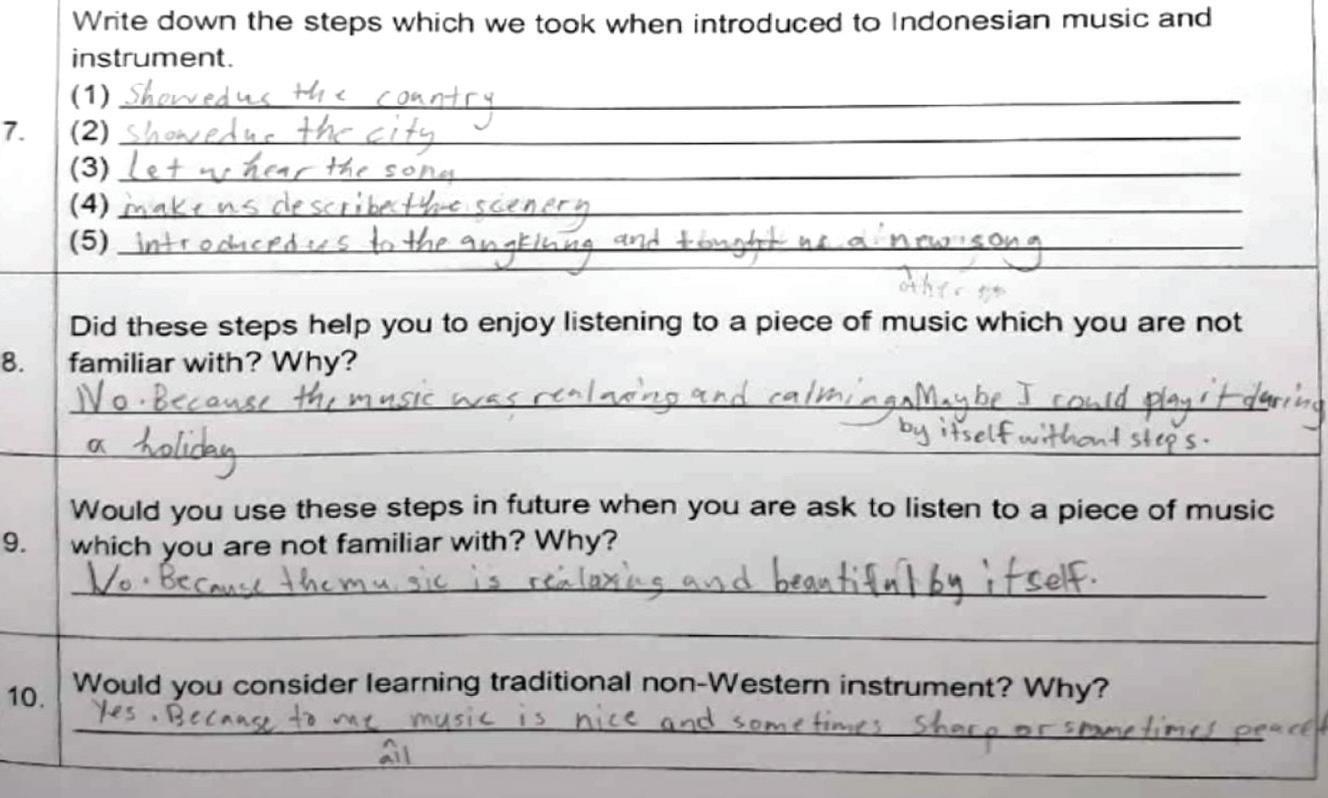 Write down the steps which we took when introduced to Indonesian music and
instrument.
(1) Showed us the country
7. (2) showed us the city
(3) Let us hear the song
(4) make us describe the scenery
(5) introduced us to the angklung and tought us a new song
other
Did these steps help you to enjoy listening to a piece of music which you are not
8. familiar with? Why?
No. Because the music was realaxing and calming Maybe I could play it during
by itself without steps.
a holiday
Would you use these steps in future when you are ask to listen to a piece of music
9. which you are not familiar with? Why?
No. Because the music is realaxing and beautiful by itself.
10. Would you consider learning traditional non-Western instrument? Why?
Yes. Because to me music is nice and sometimes sharp or sometimes
all